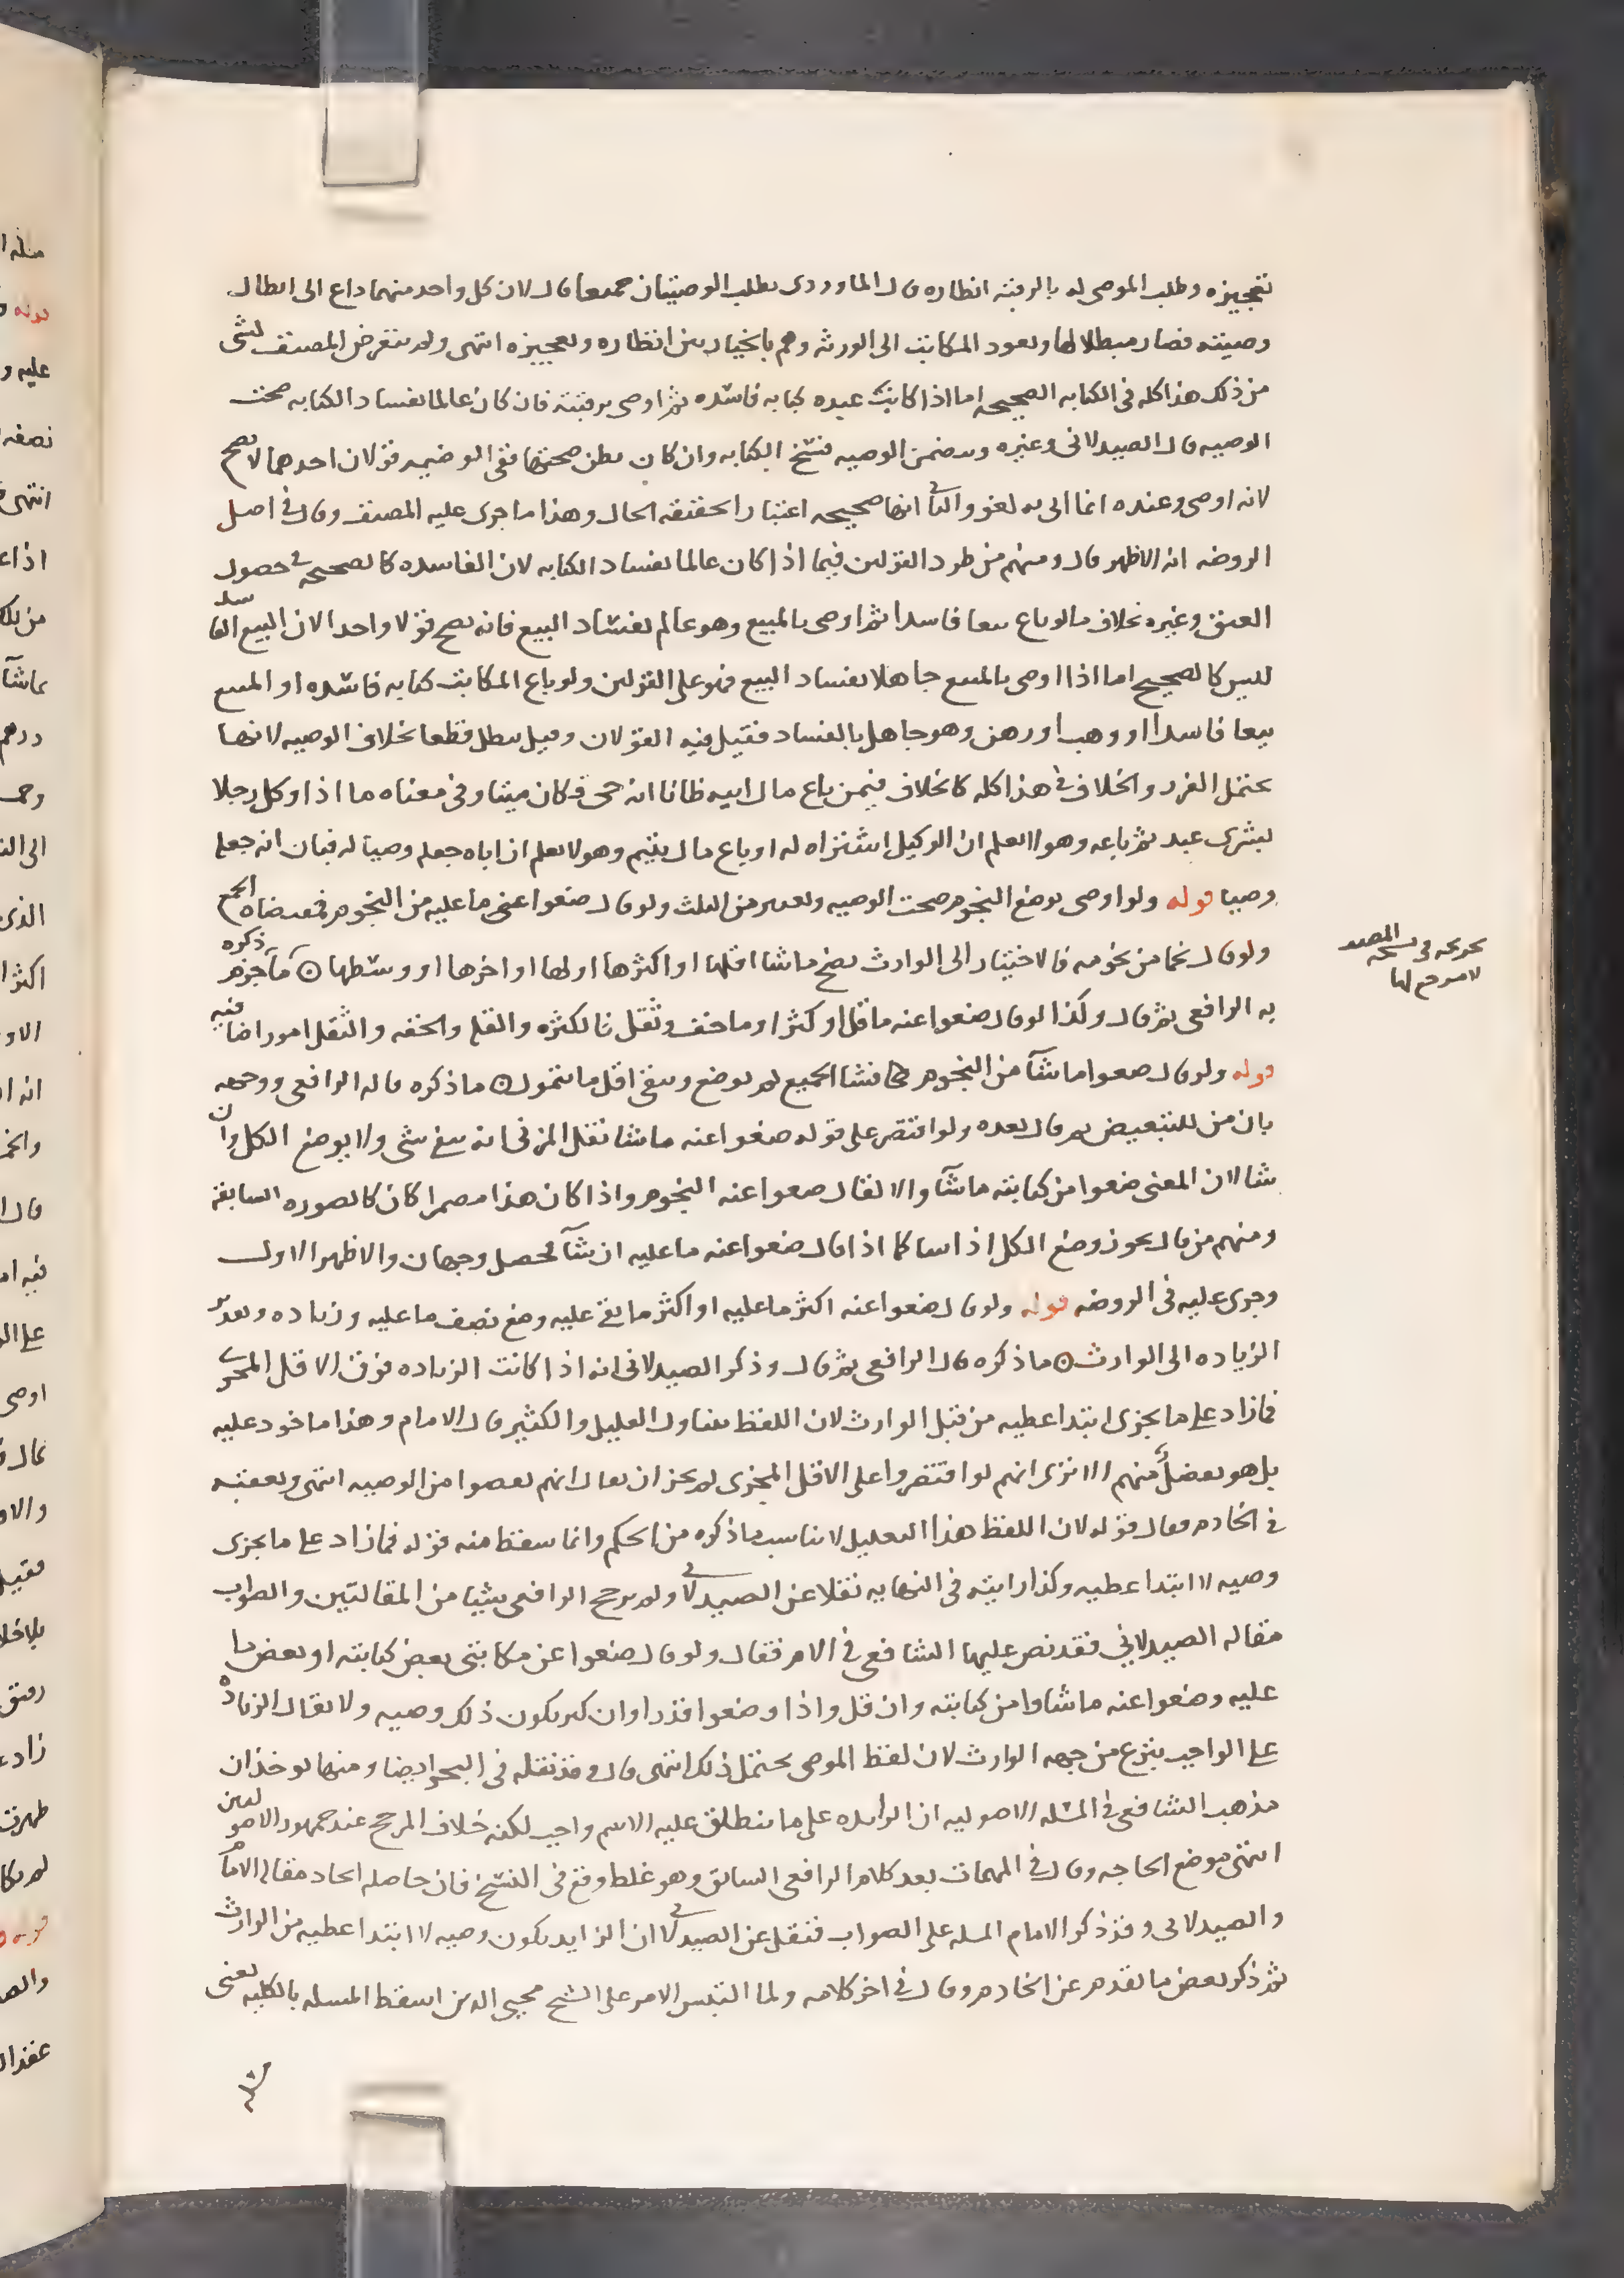 تعجيزه وطلب الموصى له بالرقبة انظاره قال الماوردى بطلت الوصيتان جميعا قال لان كل واحد منهما داع الى ابطال
وصيته فصار مبطلا لها وتعود المكاتب الى الورثه وهم بالخيار بين انظاره وتعجيزه انتهى ولم يتعرض المصنف لشى
من ذلك هذا كله فى الكتابه الصحيحه اما اذا كاتب عبده كتابه فاسده ثم اوصى برقبته فان كان عالما بفساد الكتابه صحت
الوصيه قال الصيدلانى وغيره وتتضمن الوصيه فسخ الكتابه وان كان يظن صحتها ففى الوصيه قولان احدهما لا تصح
لانه اوصى وعنده انما اتى به لغو والثانى انها صحيحه اعتبارا بحقيقه الحال وهذا ما جرى عليه المصنف وقال فى اصل
الروضه انه الاظهر قال ومنهم من طرد القولين فيما اذا كان عالما بفساد الكتابه لان الفاسده كالصحيحه فى حصول
العتق وغيره بخلاف ما لو باع بيعا فاسدا ثم اوصى بالمبيع وهو عالم بفساد البيع فانه يصح قولا واحدا لان البيع الفاسد
ليس كالصحيح اما اذا اوصى بالمبيع جاهلا بفساد البيع فهو على القولين ولو باع المكاتب كتابه فاسده او المبيع
بيعا فاسدا او وهب او رهن وهو جاهل بالفساد فقيل فيه القولان وقيل يبطل قطعا بخلاف الوصيه لانها
تحتمل الغرر والخلاف فى هذا كله كالخلاف فيمن باع مال ابيه ظانا انه حى فكان ميتا وفى معناه ما اذا وكل رجلا
بشرى عبد ثم باعه وهو لا يعلم ان الوكيل اشتراه له او باع مال يتيم وهو لا يعلم ان اباه جعله وصيا له فبان انه جعله
وصيا قوله ولو اوصى بوضع النجوم صحت الوصيه وتعتبر من الثلث ولو قال ضعوا عنى ما عليه من النجوم فمقتضاه الجميع
ولو قال نجما من نجومه فالاختيار الى الوارث يضع ما شا اقلها او اكثرها اولها او اخرها او وسطها ٥ ما ذكره جزم
به الرافعى ثم قال وكذا لو قال ضعوا عنه ما قل او كثر او ما خف وثقل فالكثره والقله والخفه والثقل امور اضافيه
قوله ولو قال ضعوا ما شآ من النجوم فشا الجميع لم يوضع ويبقى اقل ما يتمول ٥ ما ذكره قاله الرافعى ووجهه
بان من للتبعيض ثم قال بعده ولو اقتصر على قوله ضعوا عنه ما شا نقل المزنى انه يبقى شى ولا يوضع الكل وان
شا لان المعنى ضعوا من كتابته ما شآ والا لقال ضعوا عنه النجوم واذا كان هذا مضمرا كان كالصوره السابقه
ومنهم من قال يجوز وضع الكل اذا شا كما اذا قال ضعوا عنه ما عليه ان شآ فحصل وجهان والاظهر الاول
وجرى عليه فى الروضه قوله ولو قال ضعوا عنه اكثر ما عليه او اكثر ما بقى عليه وضع نصف ما عليه وزياده وتقدير
الزياده الى الوارث ٥ ما ذكره قال الرافعى ثم قال وذكر الصيدلانى انه اذا كانت الزياده فوق الاقل المجزى
فما زاد على ما يجزى ابتدا عطيه من قبل الوارث لان اللفظ يتناول القليل والكثير قال الامام وهذا ماخوذ عليه
بل هو تفضل منهم الا ترى انهم لو اقتصروا على الاقل المجزى لم يجز ان يقال انهم نقصوا من الوصيه انتهى وتعقبه
فى الخادم فقال قوله لان اللفظ هذا التعليل لا يناسب ما ذكره من الحكم وانما سقط منه قوله فما زاد على ما يجزى
وصيه لا ابتدا عطيه وكذا رايته فى النهايه نقلا عن الصيدلانى ولم يرجح الرافعى شيئا من المقالتين والصواب
مقاله الصيدلاني فقد نص عليها الشافعى فى الام فقال ولو قال ضعوا عن مكاتبتى بعض كتابته او بعض ما
عليه وضعوا عنه ما شاوا من كتابته وان قل واذا وضعوا قدرا وان كبر يكون ذلك وصيه ولا يقال الزياده
على الواجب تبرع من جهه الوارث لان لفظ الموصى يحتمل ذلك انتهى قال وقد نقله فى البحر ايضا ومنها يوخذ ان
مذهب الشافعى فى المسله الاصوليه ان الزايده على ما ينطلق عليه الاسم واجب لكنه خلاف المرجح عند جمهور الاصوليين
انتهى موضع الحاجه وقال فى المهمات بعد كلام الرافعى السابق وهو غلط وقع فى النسخ فان حاصله اتحاد مقال الامام
والصيدلانى وقد ذكر الامام المسله على الصواب فنقل عن الصيدلانى ان الزايد يكون وصيه لا ابتدا عطيه من الوارث
ثم ذكر بعض ما تقدم عن الخادم وقال فى اخر كلامه ولما التبس الامر على الشيخ محيى الدين اسقط المسله بالكليه يعنى